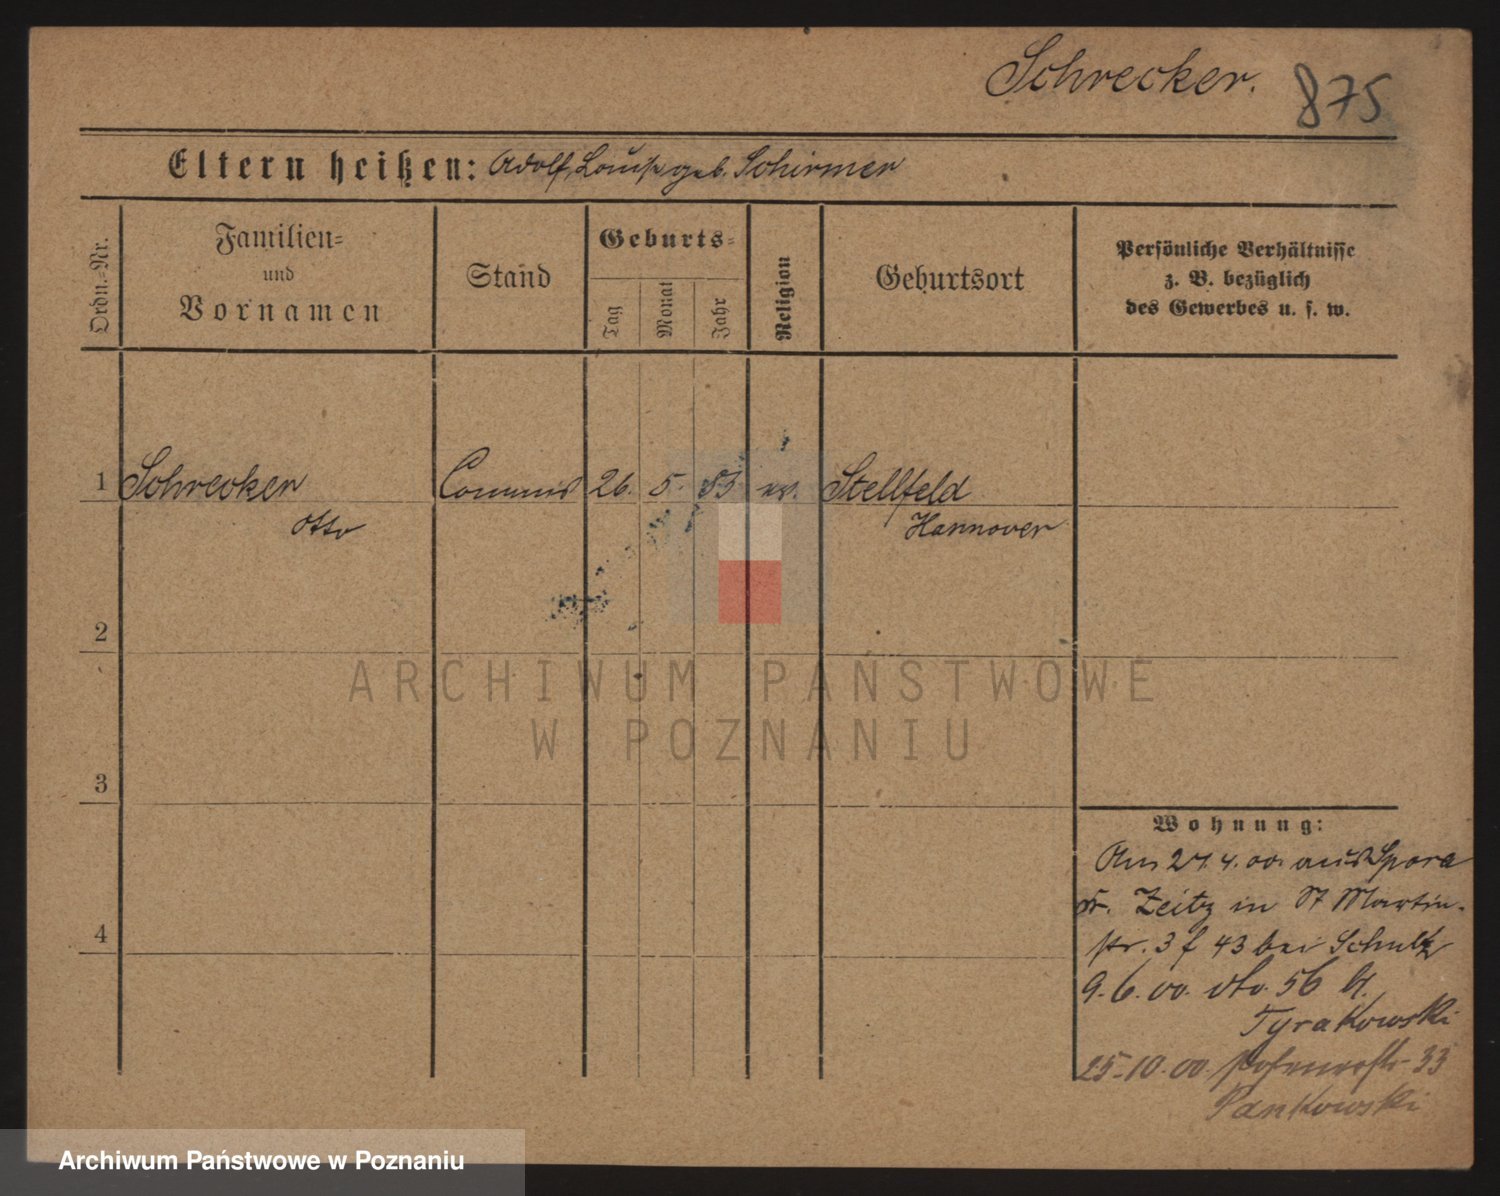 Schrecker.
875
Eltern heißen: Adolf, Louise geb. Schirmer
Ordn.-Nr.
Familien-
und
Vornamen
Stand
Geburts-
Tag
Monat
Jahr
Religion
Geburtsort
Persönliche Verhältnisse
z. B. bezüglich
des Gewerbes u. s. w.
1 Schrecker Commis 26. 5. 83 ev. Stellfeld
Otto Hannover
2
3
4
ARCHIWUM PAŃSTWOWE
W POZNANIU
Wohnung:
Am 27.4.00. aus Spora
Zeitz in St Martin-
str. 3 f 43 bei Schultz
9.6.00. dto. 56
Tyrakowski
25.10.00. 33
Pankowski
Archiwum Państwowe w Poznaniu